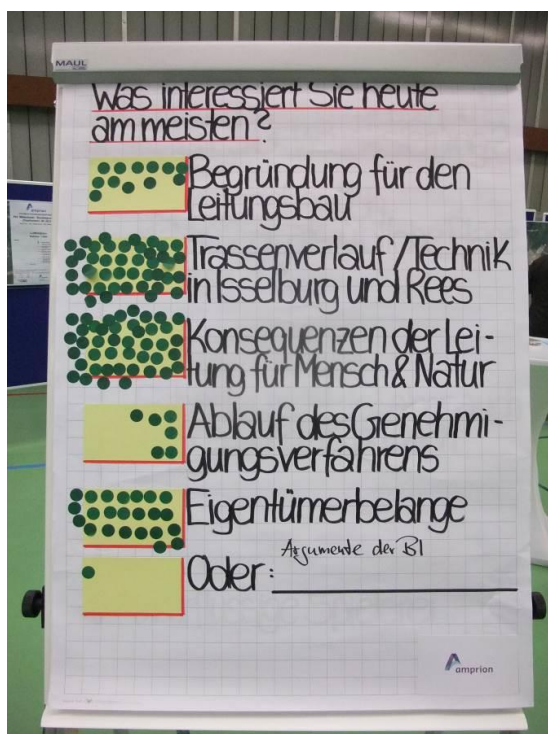 MAUL
Was interessiert Sie heute
am meisten?
Begründung für den
Leitungsbau
Trassenverlauf/Technik
in Isselburg und Rees
Konsequenzen der Lei-
tung für Mensch & Natur
Ablauf des Genehmi-
gungsverfahrens
Eigentümerbelange
Argumente der BI
Oder:
amprion